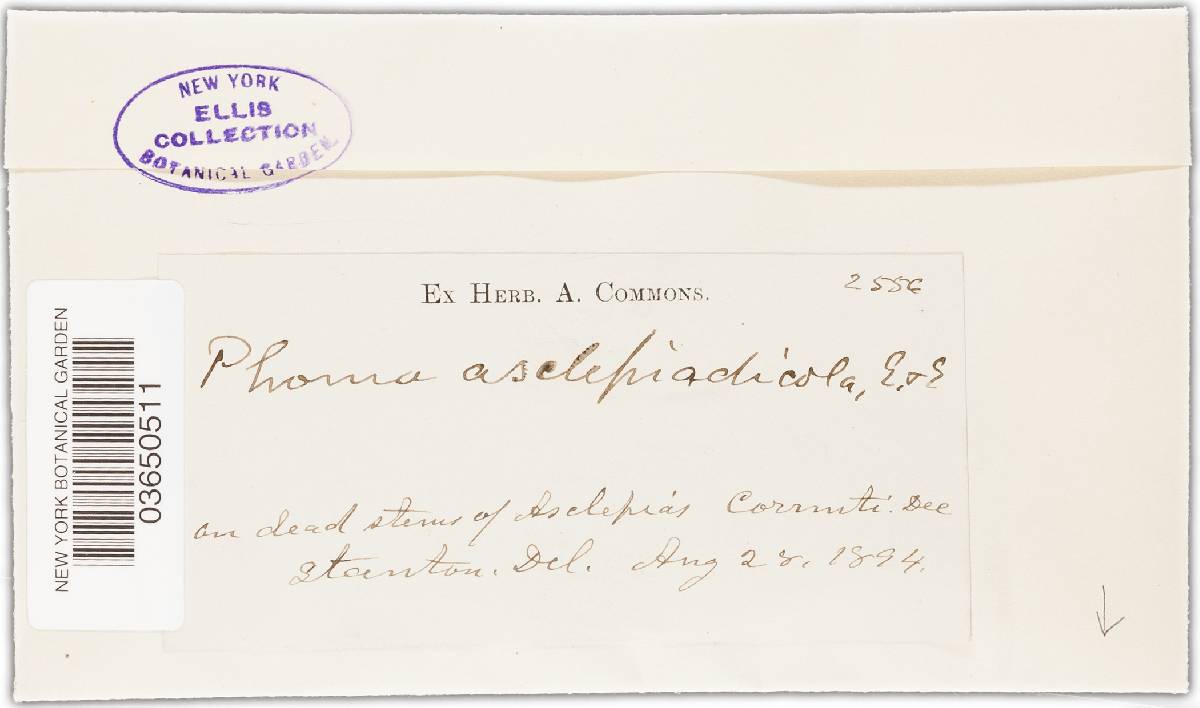 NEW YORK
ELLIS
COLLECTION
BOTANICAL GARDEN
Ex Herb. A. Commons.
2556
Phoma asclepiadicola, E. & E
on dead stems of Asclepias Cornuti. Dec
Stanton. Del. Aug 28. 1894.
NEW YORK BOTANICAL GARDEN
03650511